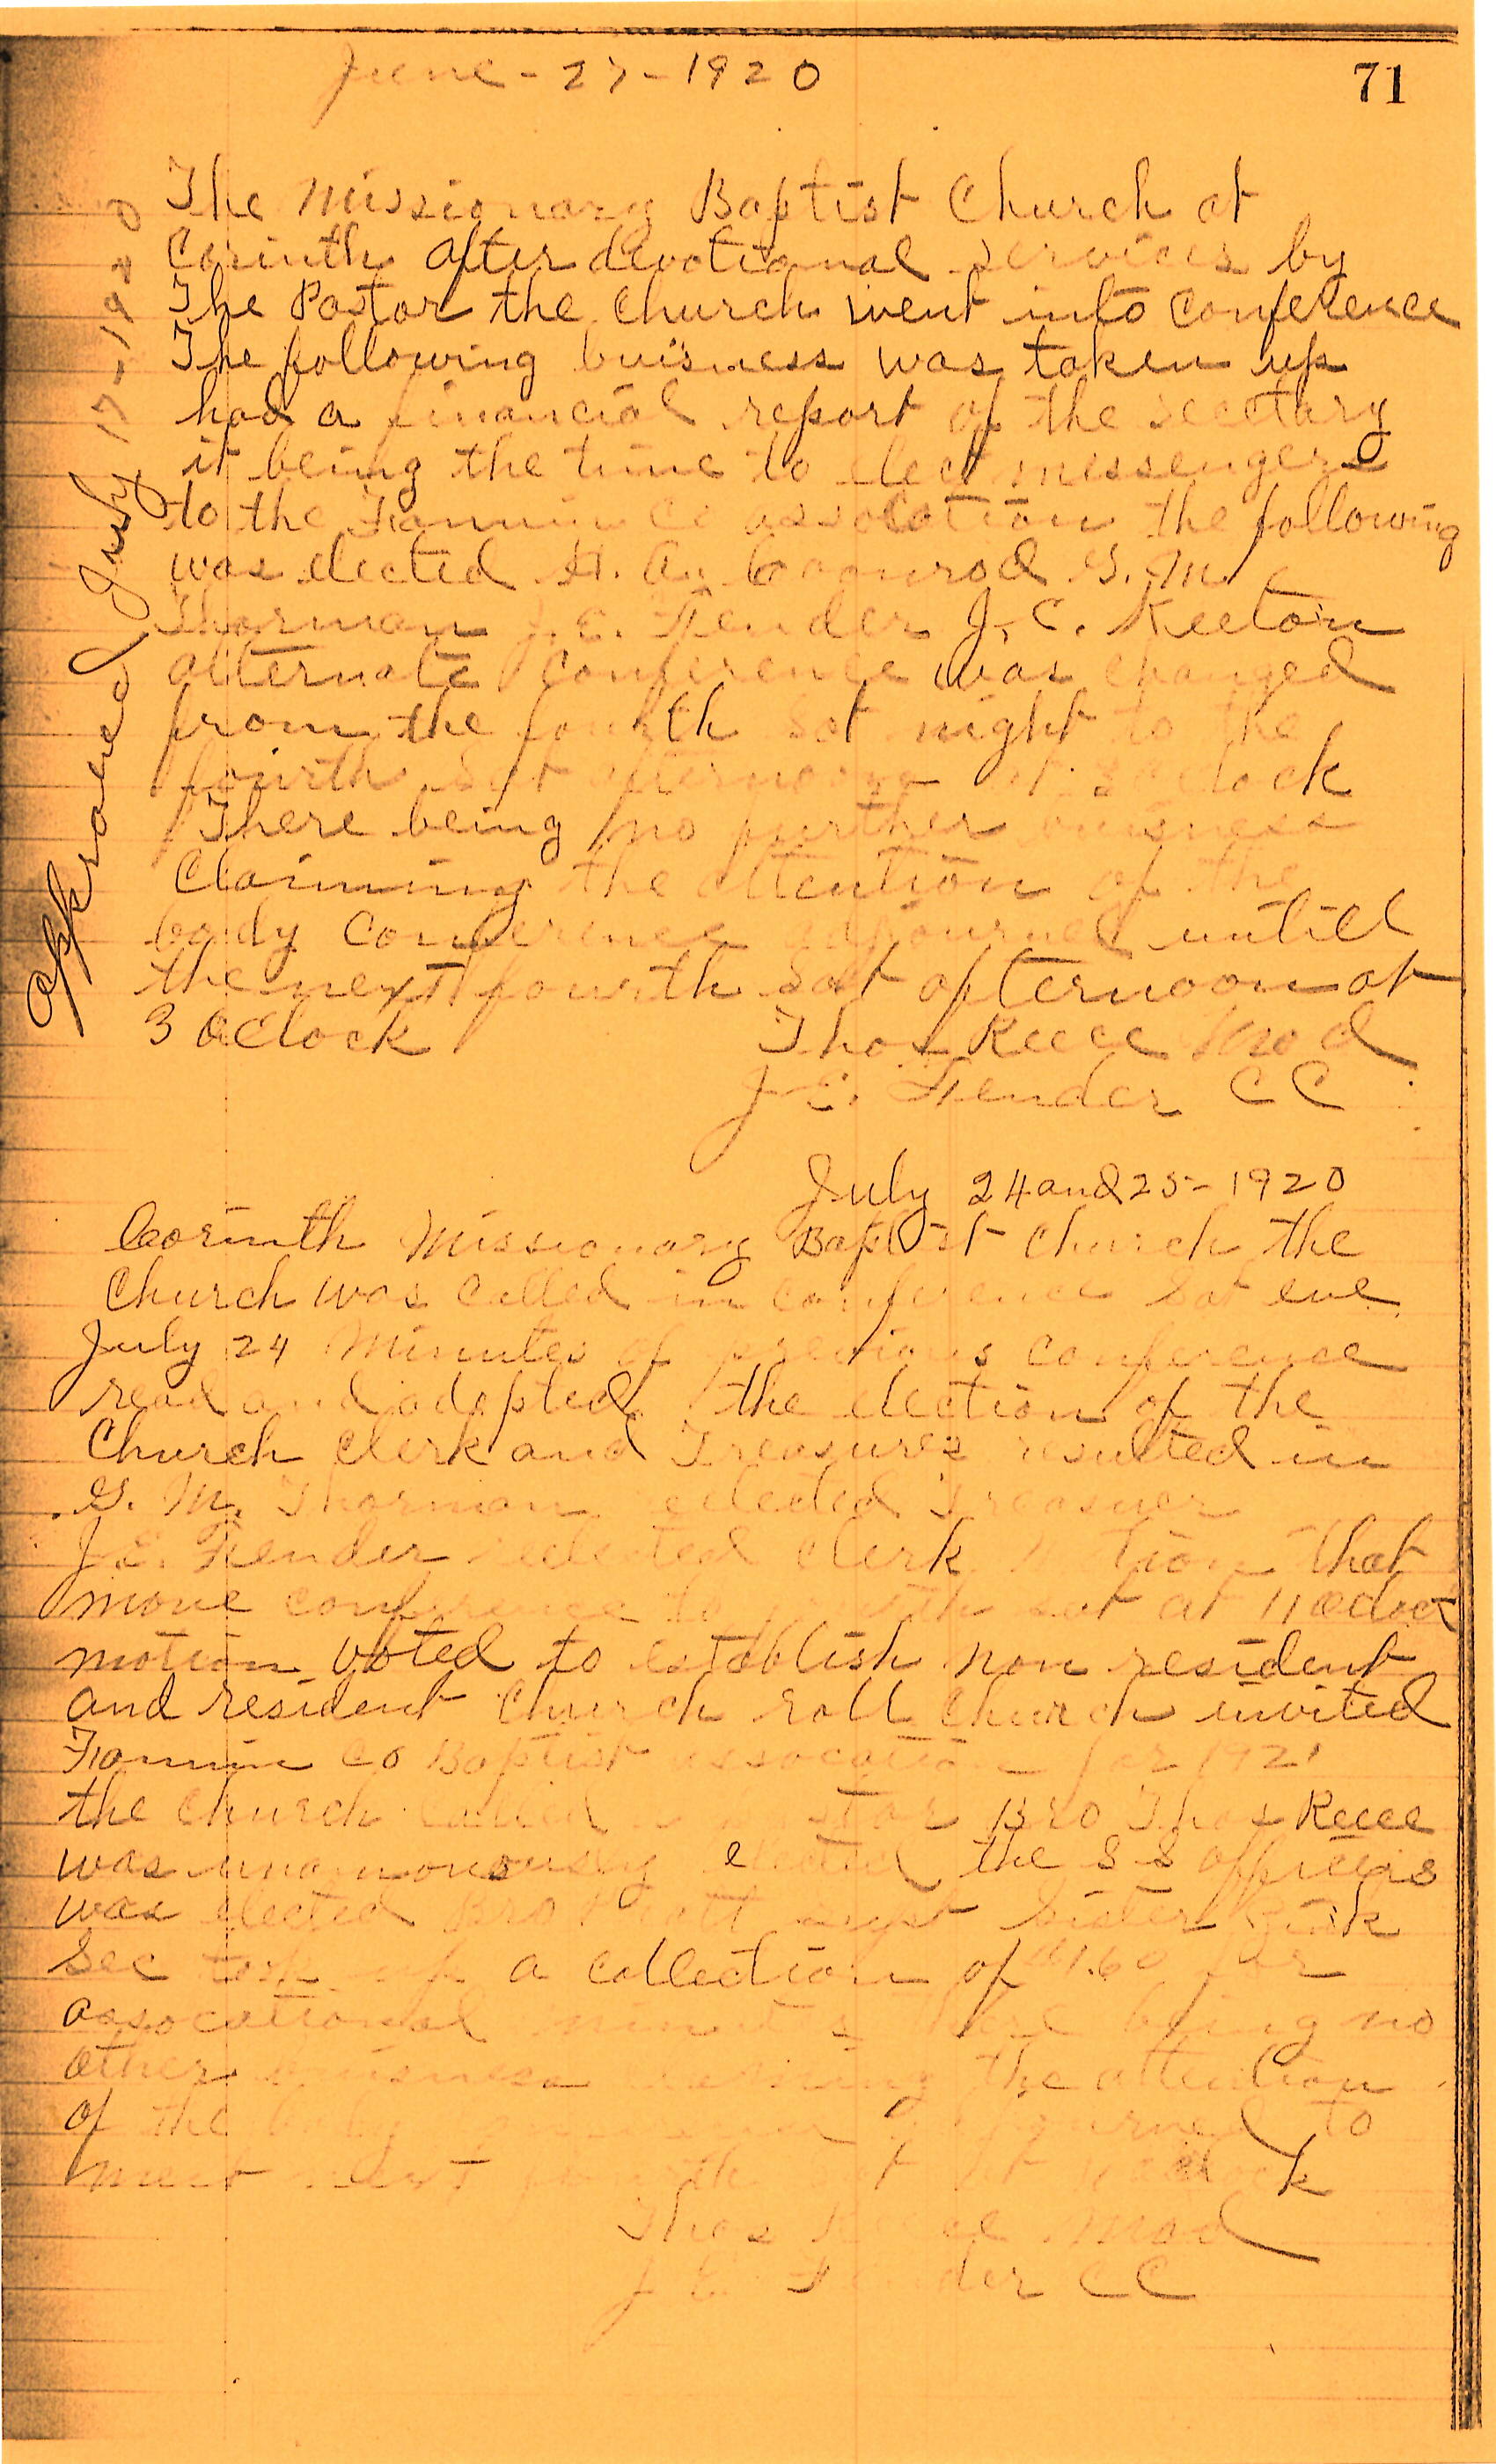 June - 27 - 1920
71
The Missionary Baptist Church at
Corinth after devotional services by
The Pastor the Church went into Conference
The following buisness was taken up
had a financial report of the secetary
it being the time to elect messengers
to the Fannin Co assocation the following
was elected H. A. G. M.
Thorman J. E. Fender J. C. Keeton
alternate Conference was changed
from the fourth Sat night to the
fourth Sat afternoon at 3 oclock
There being no further buisness
Claiming the attention of the
body Conference adjourned untill
the next fourth Sat afternoon at
3 oClock Thos Reece Mod
J E. Fender CC
approved July 17-1920
July 24 and 25 - 1920
Corinth Missionary Baptist church the
Church was Called in conference Sat eve
July 24 Minutes of previous conference
read and adopted the election of the
Church Clerk and Treasurer resulted in
G. M. Thorman elected Treasuer
J. E. Fender clerk that
move conference to Sat at 11 oclock
motion voted to establish non resident
and resident Church roll Church invited
Fannin Co Baptist assocation for 1921
the Church Called Bro Thos Reece
was unamonousely elected the S S officers
was elected Bro supt Sister
Sec took up a collection of $1.60 for
assocational minuts there being no
other buisness the attention
of the body adjourned to
meet next at oclock
Thos Reece Mod
J E Fender CC